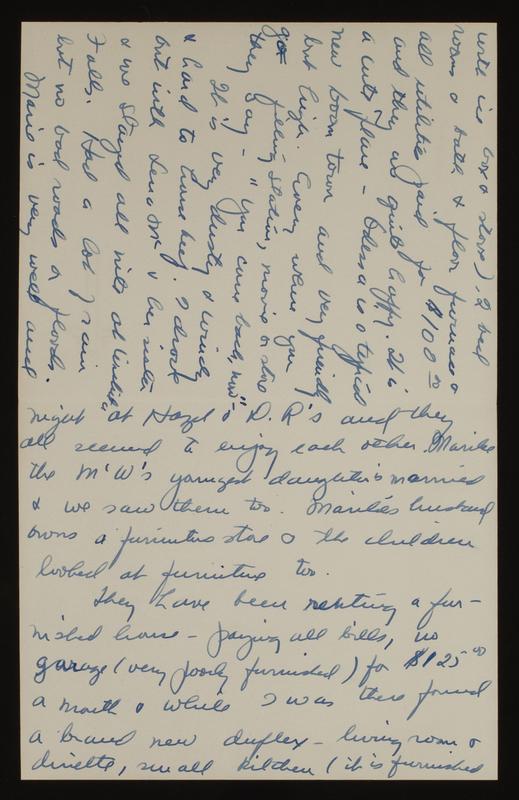 night at Hazel & D.R's and they
all seemed to enjoy each other. Marilee
the McW's youngest daughter is married
& we saw them too. Marilee's husband
owns a furniture store & the children
looked at furniture too.
They have been renting a fur-
nished house - paying all bills, no
garage (very poorly furnished) for $125.00
a month & while I was there found
a brand new duplex - living room &
dinette, small kitchen (it is furnished
with ice box & stove). 2 bed
rooms & bath & floor furnace &
all utilities paid for $100.00
and they are quite happy. It is
a cute place - Odessa is a typical
new boom town and very friendly
but high. Every where you
go filling station, movie or store
they say - "You come back, now" -
It is very dusty & windy
& hard to have keep. I drove
out with Lena Mc & her sister
& we stayed all nite at Wichita
Falls. Had a lot of rain
but no bad roads or floods.
Marie is very well and